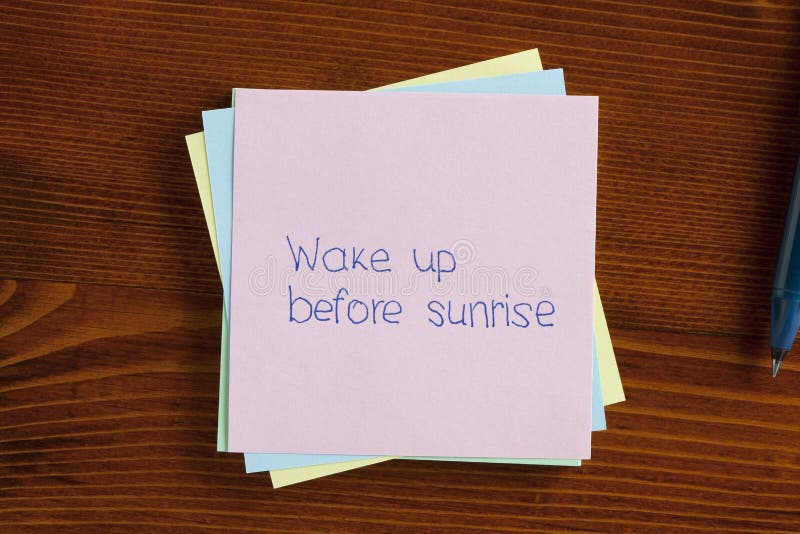 Wake up
before sunrise